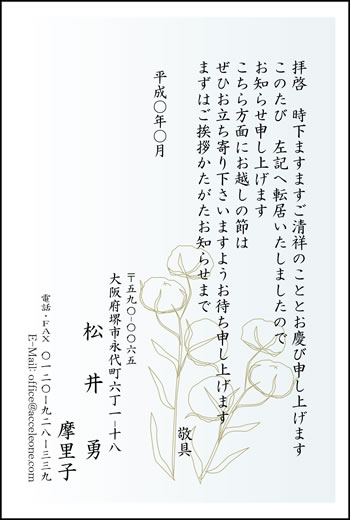 拝啓　時下ますますご清祥のこととお慶び申し上げます
このたび　左記へ転居いたしましたので
お知らせ申し上げます
こちら方面にお越しの節は
ぜひお立ち寄り下さいますようお待ち申し上げます
まずはご挨拶かたがたお知らせまで
敬具
平成〇年〇月
〒五九〇-〇〇六五
大阪府堺市永代町六丁一-十八
松井　勇
摩里子
電話・FAX 〇一二〇-九二八-三三九
E-Mail: office@acceleone.com